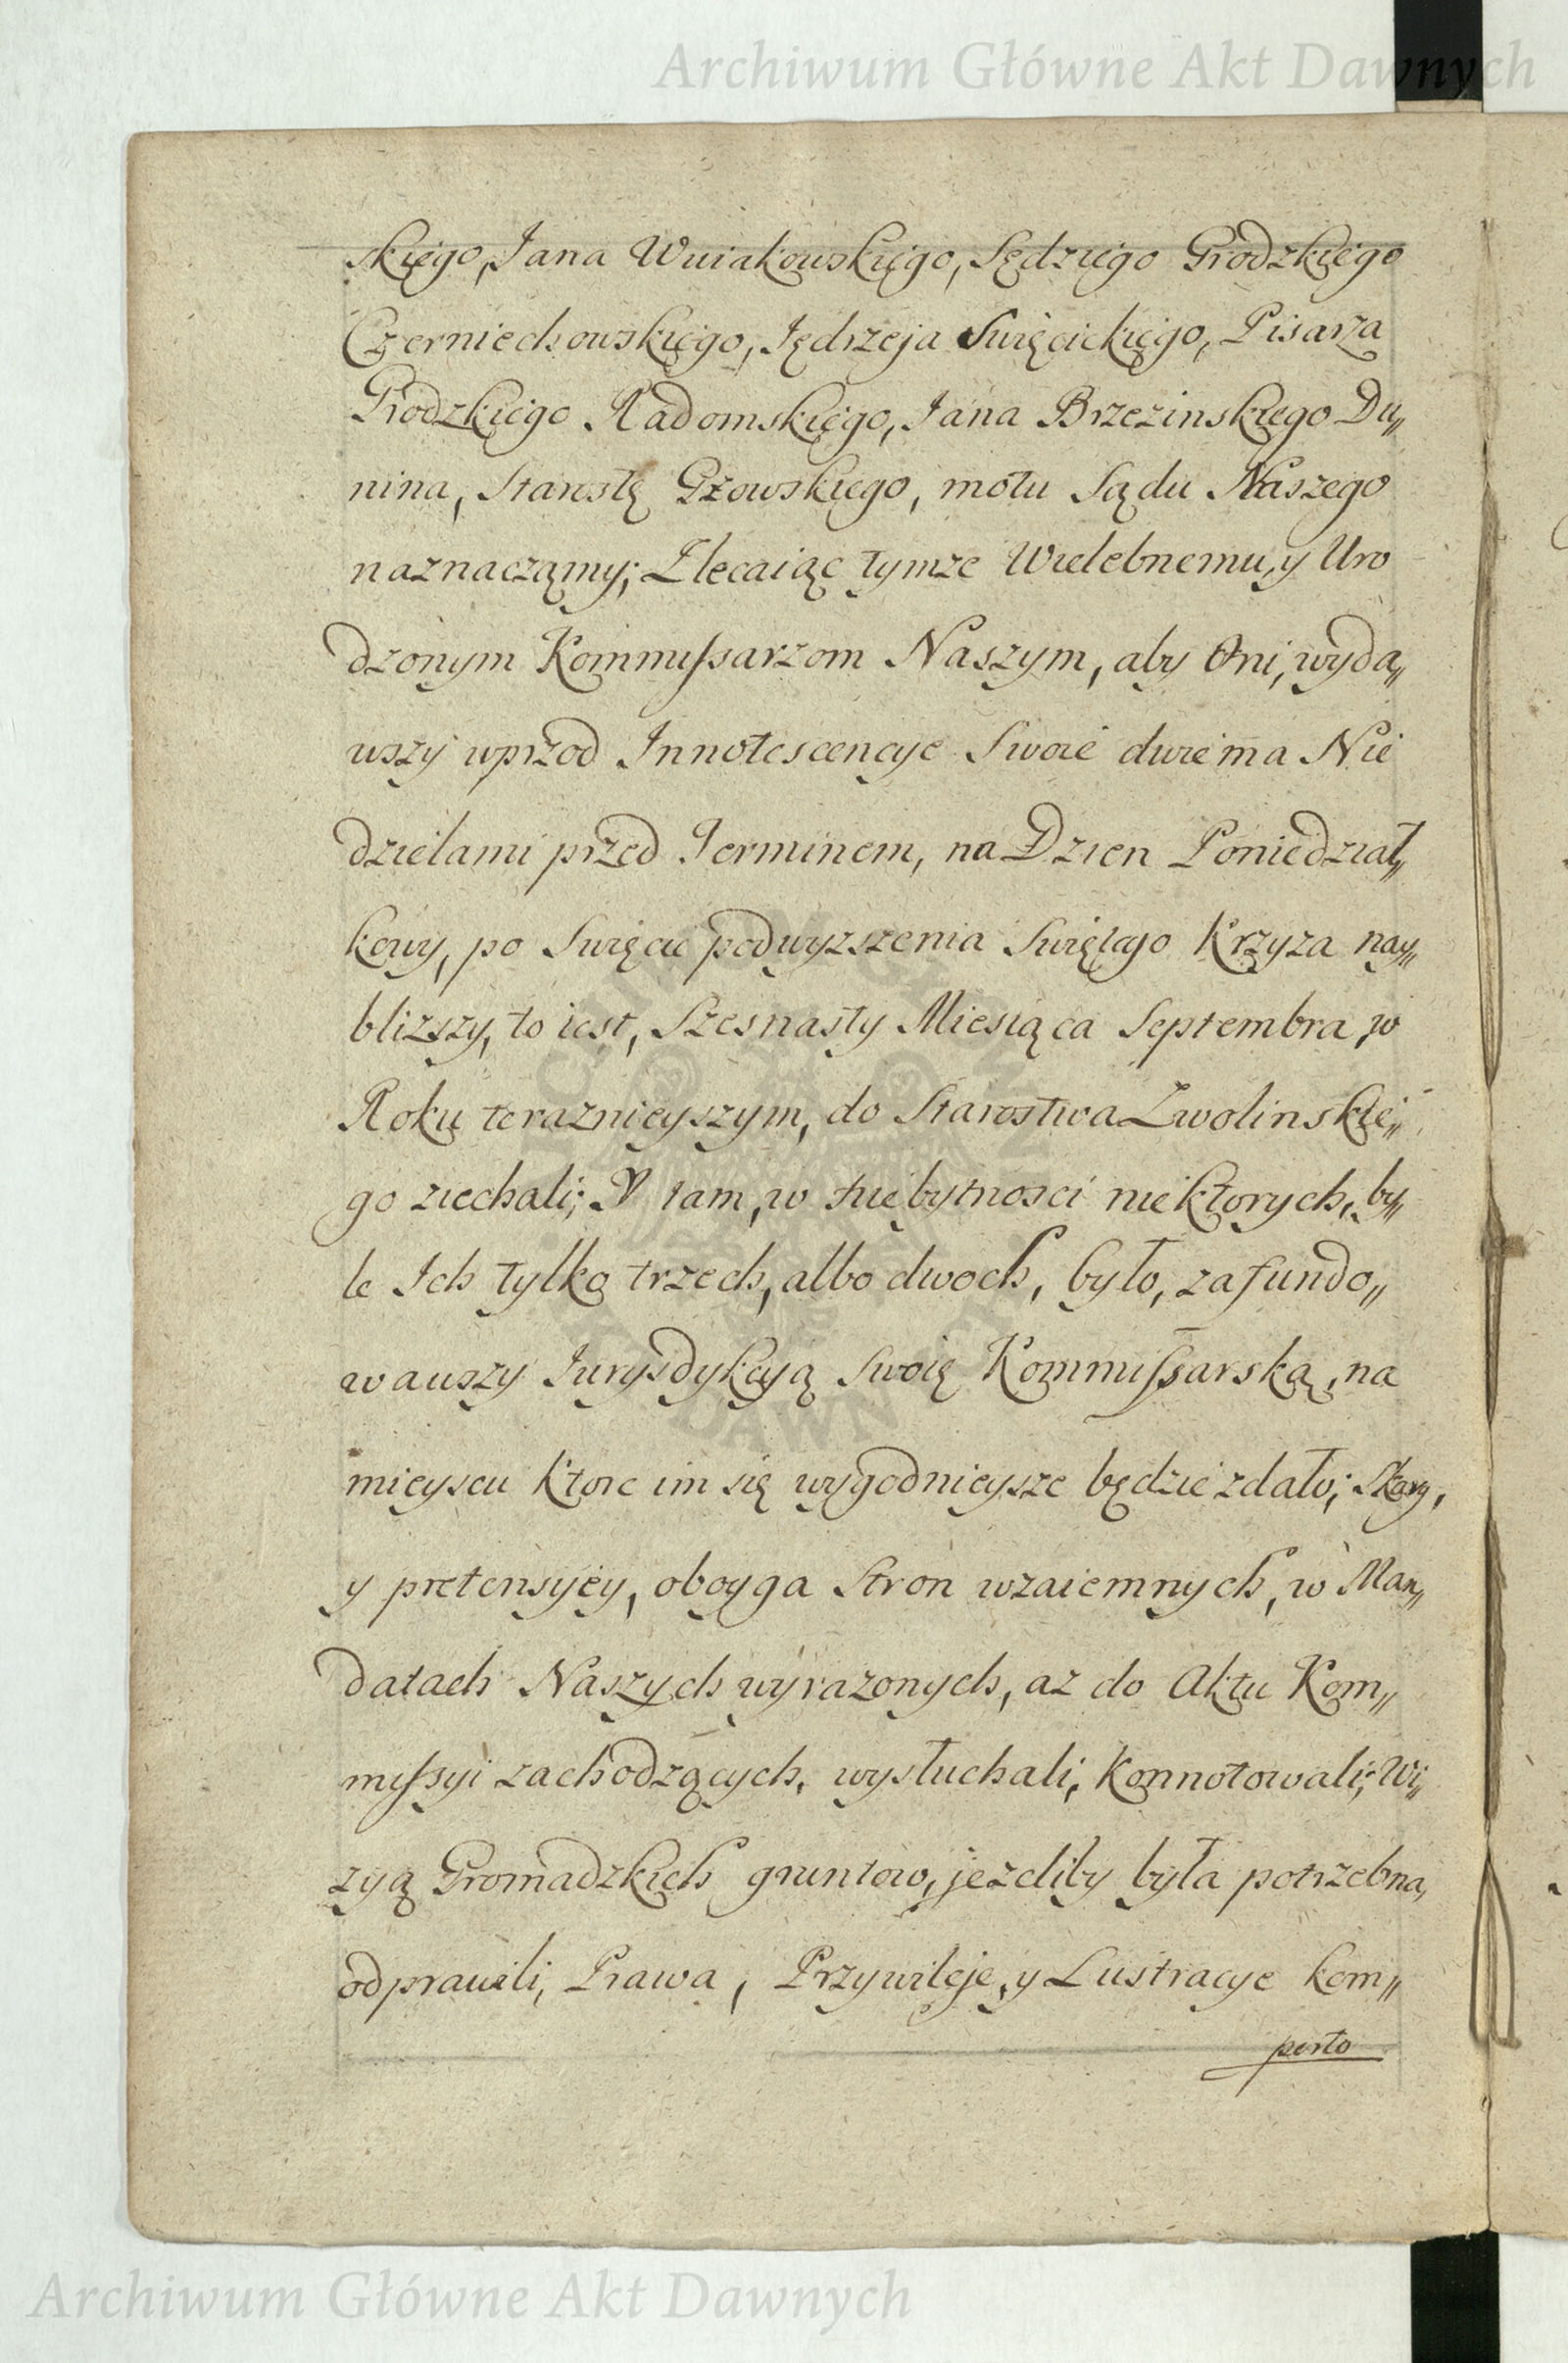 Archiwum Główne Akt Dawnych
skiego, Jana Wuiakowskiego, Sędziego Grodzkiego
Czerniechowskiego, Jędrzeja Swięcickiego, Pisarza
Grodzkiego Radomskiego, Jana Brzezinskiego Du„
nina, Starostę Gżowskiego, motu Sądu Naszego
naznaczamy; Zlecaiąc tymże Wielebnemu, y Uro
dzonym Kommissarzom Naszym, aby Oni, wyda„
wszy wprzod Innotescencye Swoie dwiema Nie
dzielami przed Terminem, na Dzien Poniedział„
kowy, po Swięcie podwyzszenia Swiętego Krzyza nay„
blizszy, to iest, Szesnasty Miesiąca Septembra, w
Roku teraznieyszym, do Starostwa Zwolinskie„
go ziechali; Y tam, w niebytnosci niektorych, by„
le Ich tylko trzech, albo dwoch, było, zafundo„
wawszy Jurysdykcyą Swoię Kommissarską, na
mieyscu ktore im się wygodnieysze będzie zdało; Skarg,
y pretensyey, oboyga Stron wzaiemnych, w Man„
datach Naszych wyrazonych, az do Aktu Kom„
missyi zachodzących, wysłuchali, konnotowali; Wi„
zyą Gromadzkich gruntow, jezeliby była potrzebna,
odprawili, Prawa, Przywileje, y Lustracye kom„
porto
Archiwum Główne Akt Dawnych